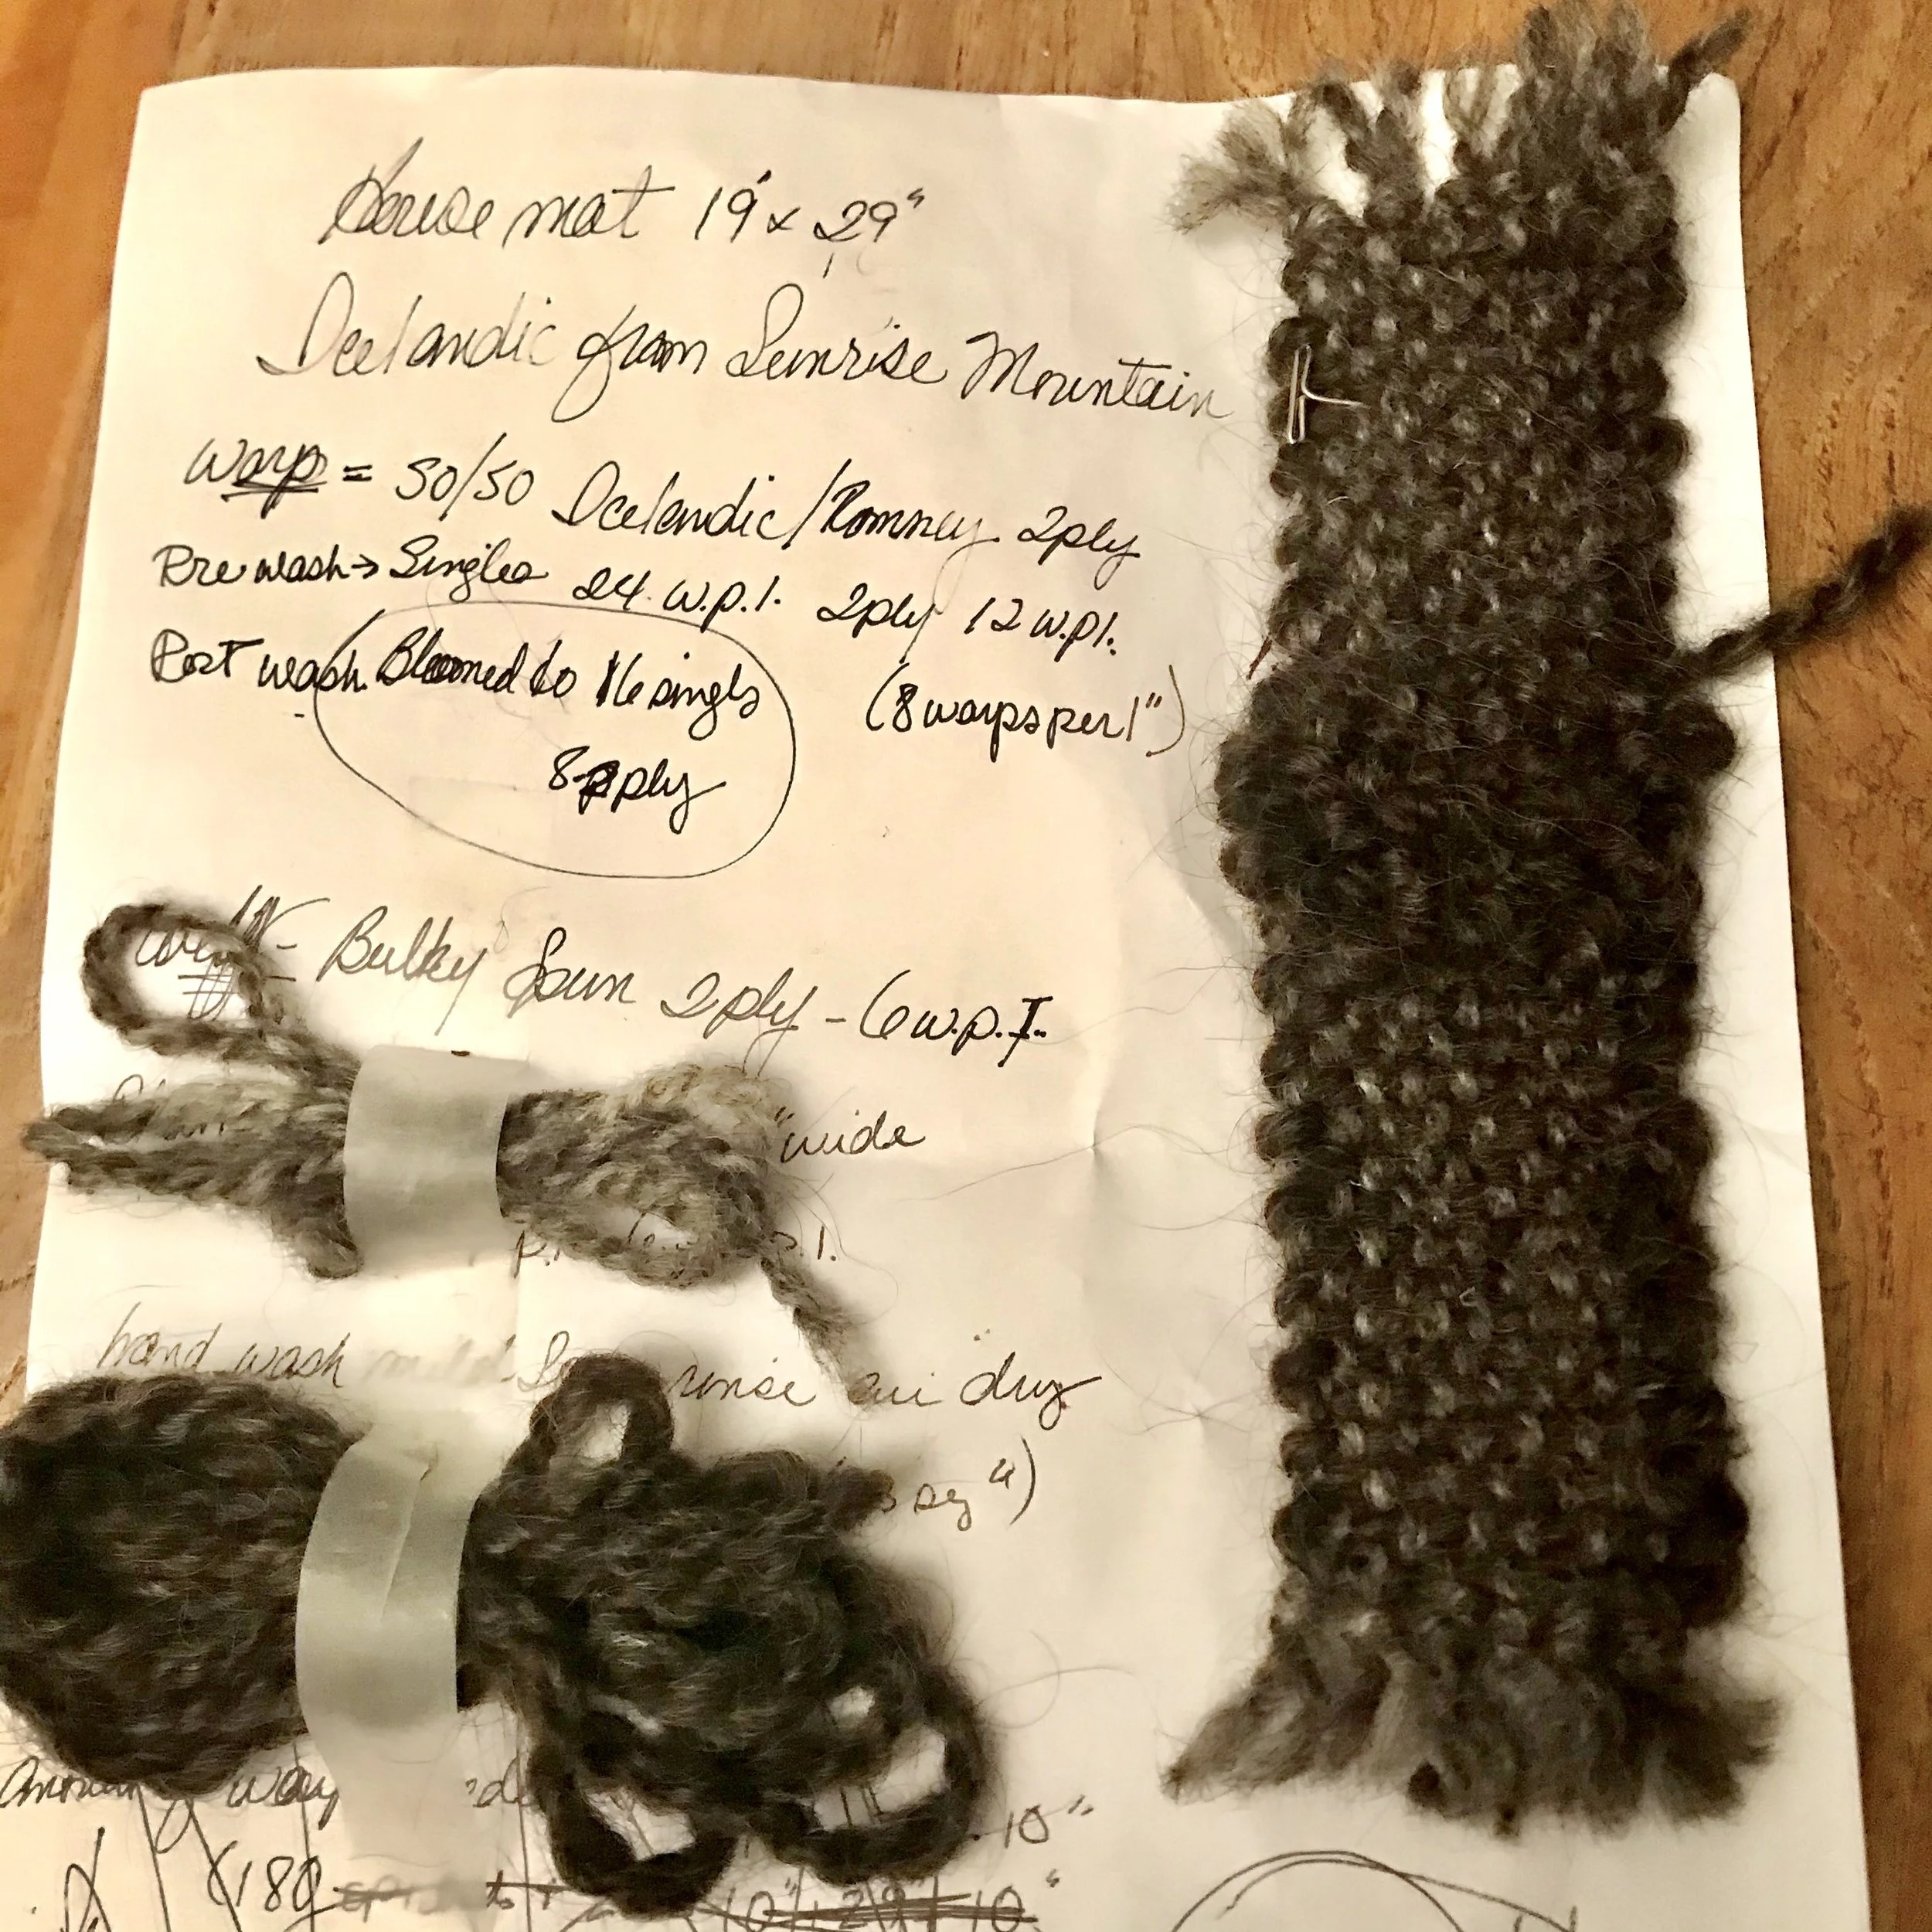 House mat 19" x 29"
Icelandic from Sunrise Mountain
Warp = 50/50 Icelandic/Romney 2ply
Pre wash → Singles 24 w.p.1. 2ply 12 w.p1.
Post wash. Bloomed to 16 singls (8 warps per 1")
8 ply
weft - Bulky Spun 2ply - 6 w.p.I.
" wide
hand wash mild rinse air dry
")
10"
(180
10" + 29" + 10"